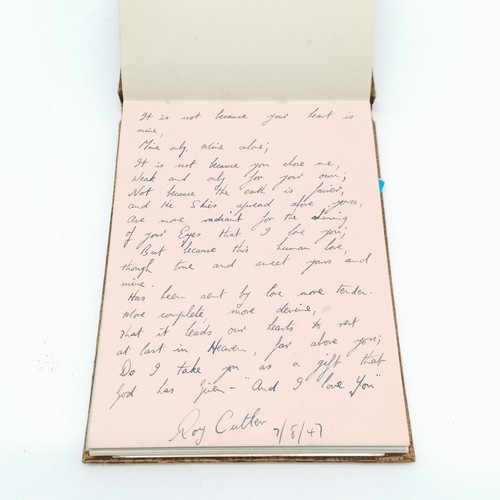 It is not because your heart is
mine,
Mine only, Mine alone;
It is not because you chose me,
Weak and only for your own;
Not because the earth is fairer,
and the Skies spread above you,
Are more radiant for the shining
of your Eyes that I love you;
But because this human love,
though true and sweet yours and
mine.
Has been sent by love more tender.
More complete, more devine,
That it leads our hearts to rest
at last in Heaven, far above you;
Do I take you as a gift that
God has given - "And I love You"
Roy Cutler 7/8/47